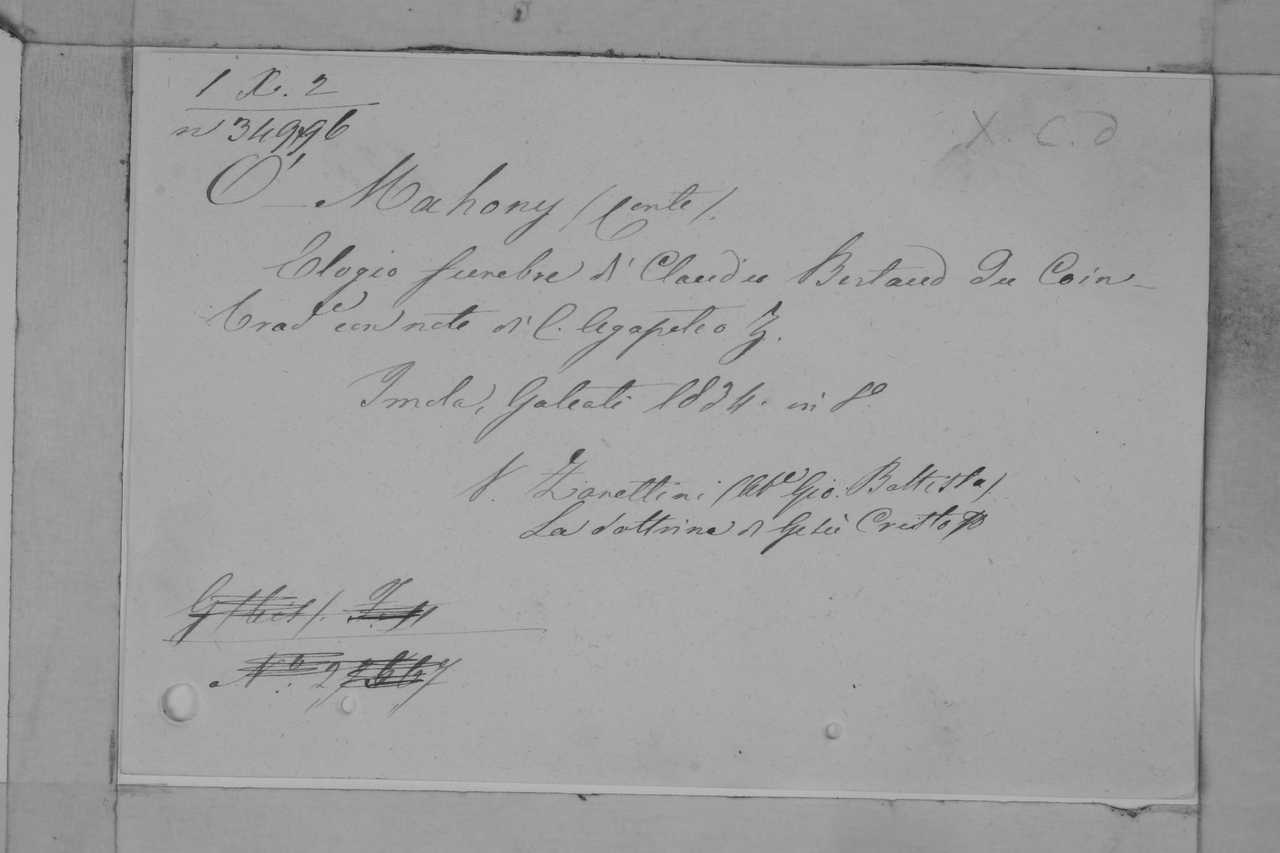 1 X. 2
n 34996
X. C. d
O' Mahony (Conte).
Elogio funebre di Claudio Bertaud Du Coin-
Trad.e con note di C. Agapeteo Z.
Imola, Galeati 1834. in 8°
V. Zanettini (Ab.e Gio. Battista)
La dottrina di Gesù Cristo
N.°